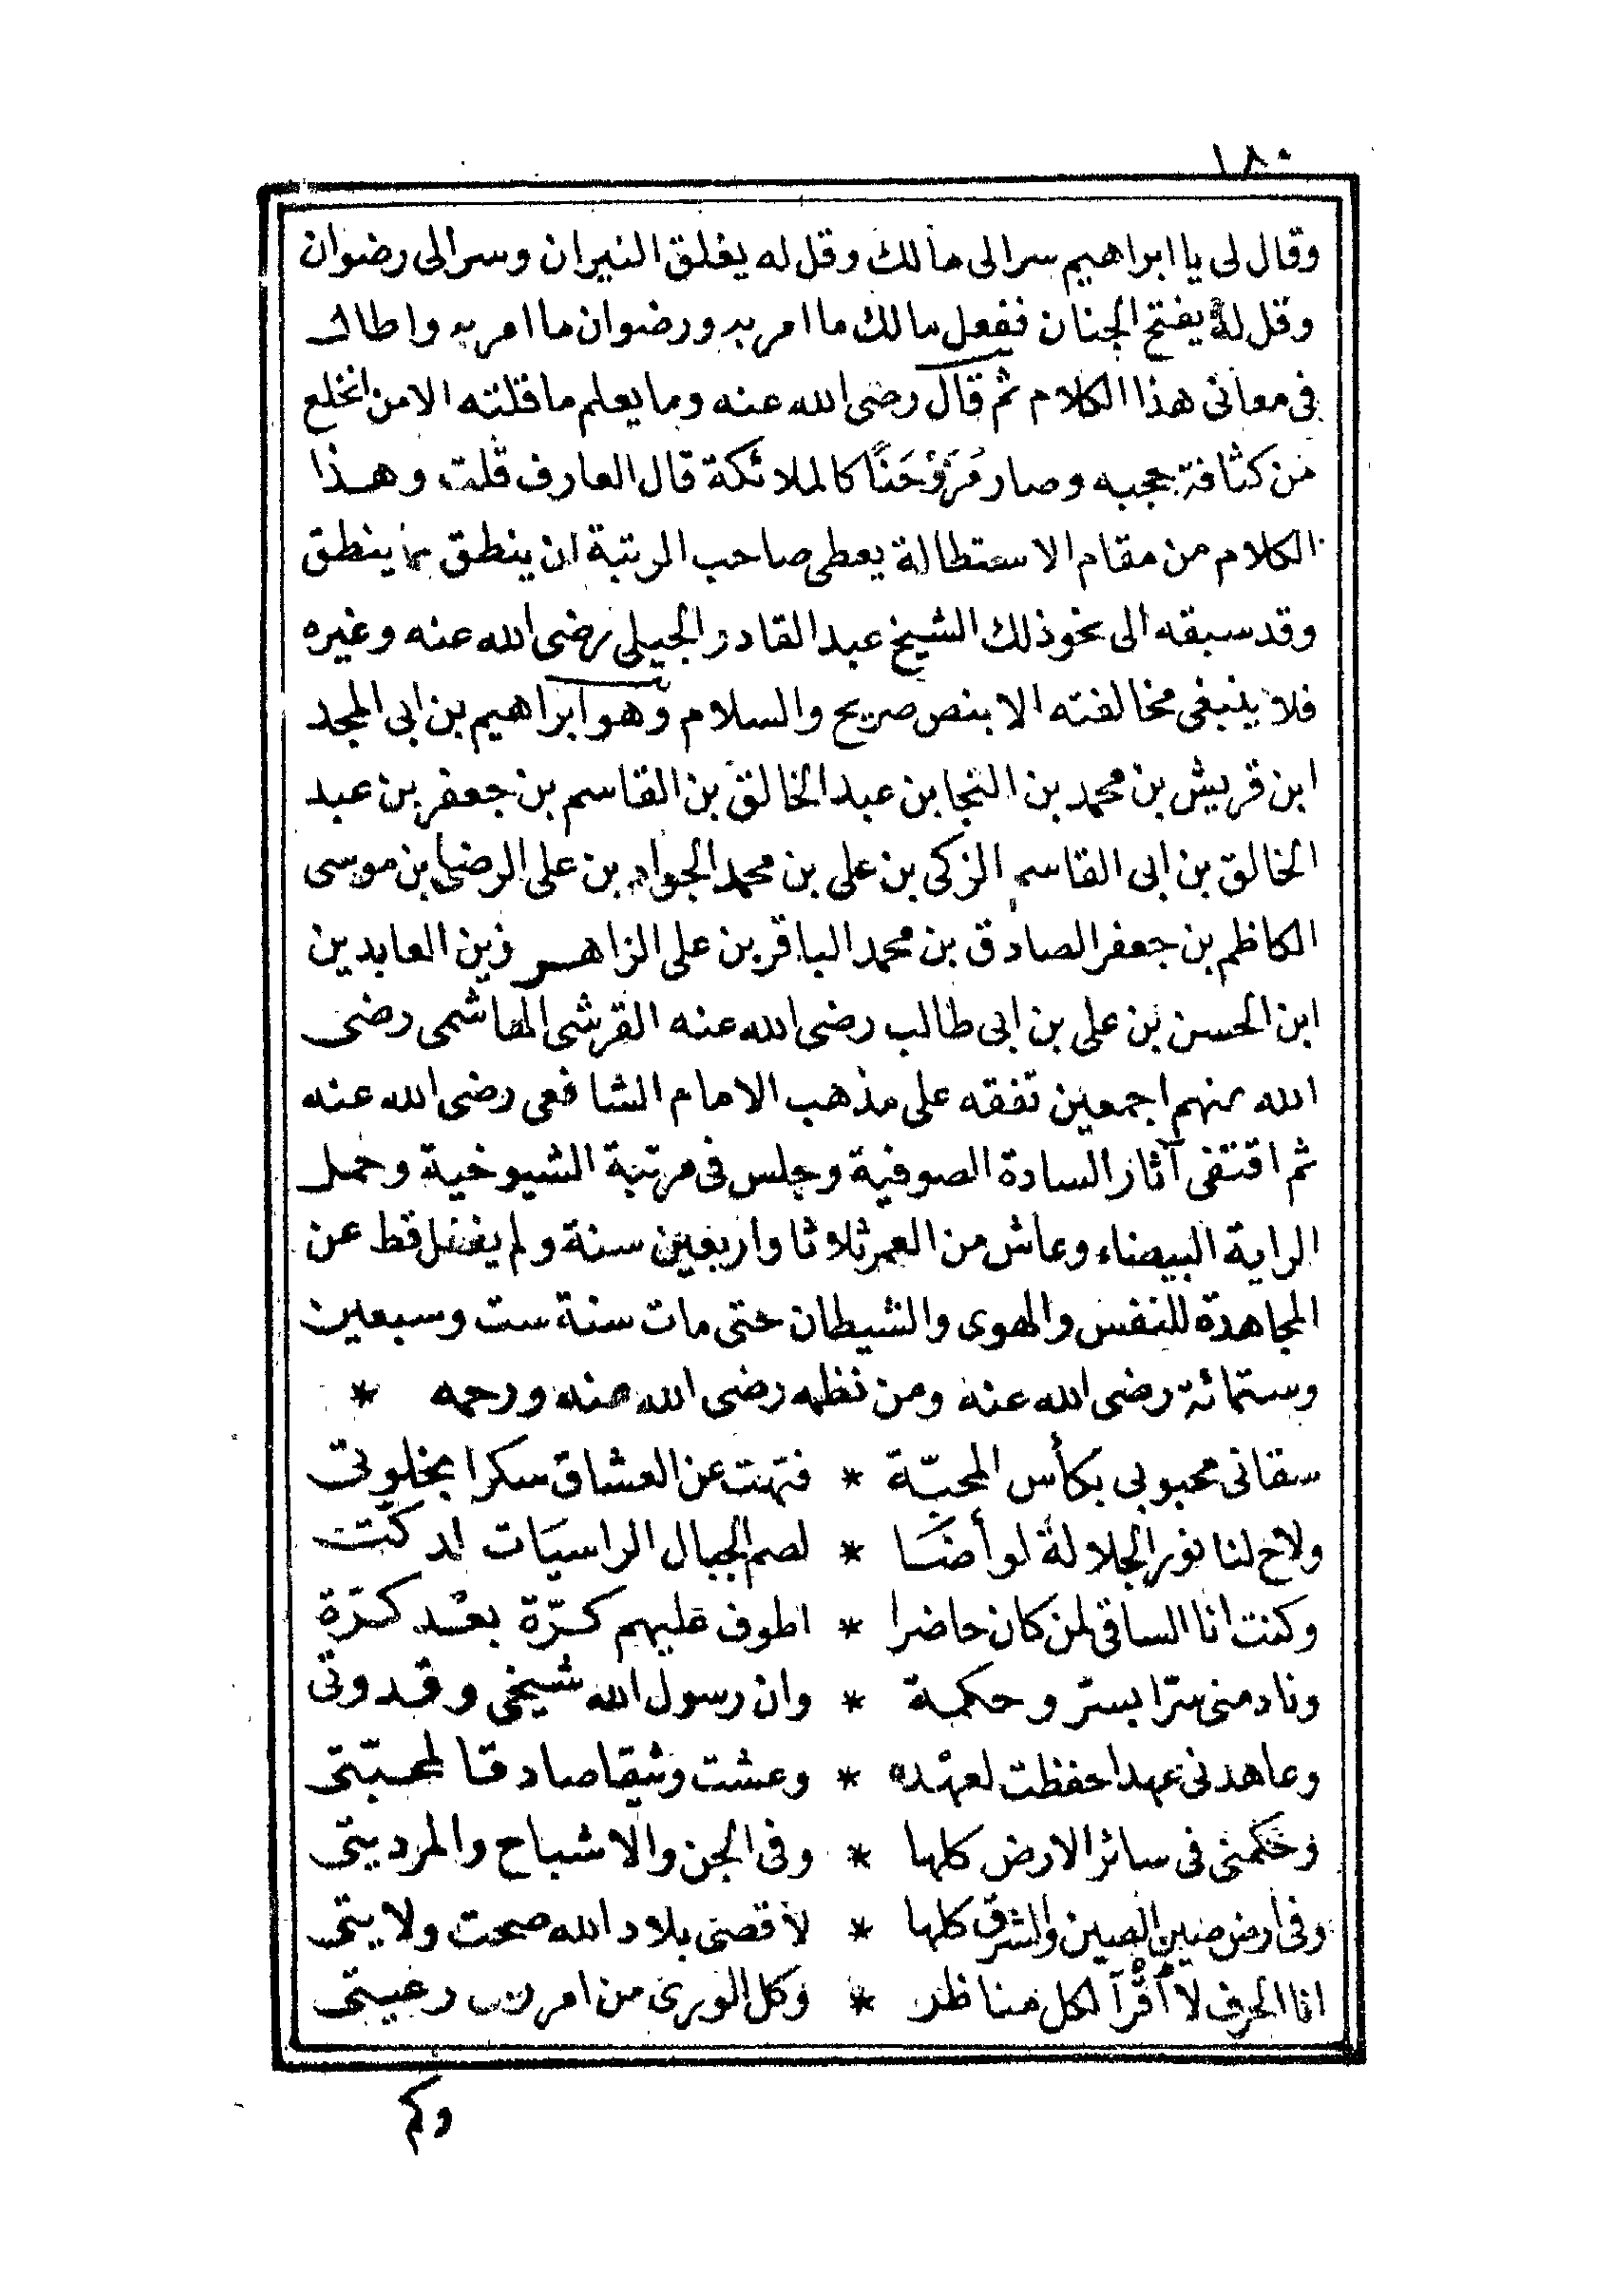 ١٨٠
وقال لى يا ابراهيم سر الى مالك وقل له يغلق النيران وسر الى رضوان
وقل له يفتح الجنان ففعل مالك ما امر به ورضوان ما امر به واطال
فى معانى هذا الكلام ثم قال رضى الله عنه وما يعلم ما قلته الا من انخلع
من كثافة حجبه وصار مُرَوْحَنًا كالملائكة قال العارف قلت وهذا
الكلام من مقام الاستطالة يعطى صاحب الرتبة ان ينطق بما ينطق
وقد سبقه الى نحو ذلك الشيخ عبد القادر الجيلى رضى الله عنه وغيره
فلا ينبغى مخالفته الا بنص صريح والسلام وهو ابراهيم بن ابى المجد
ابن قريش بن محمد بن النجا بن عبد الخالق بن القاسم بن جعفر بن عبد
الخالق بن ابى القاسم الزكى بن على بن محمد الجواد بن على الرضى بن موسى
الكاظم بن جعفر الصادق بن محمد الباقر بن على الزاهر زين العابدين
ابن الحسن بن على بن ابى طالب رضى الله عنه القرشى الهاشمى رضى
الله عنهم اجمعين تفقه على مذهب الامام الشافعى رضى الله عنه
ثم اقتفى آثار السادة الصوفية وجلس فى مرتبة الشيوخية وحمل
الراية البيضاء وعاش من العمر ثلاثا واربعين سنة ولم يغفل قط عن
المجاهدة للنفس والهوى والشيطان حتى مات سنة ست وسبعين
وستمائة رضى الله عنه ومن نظمه رضى الله عنه ورحمه *
سقانى محبوبى بكأس المحبّة * فتهت عن العشاق سكرا بخلوتى
ولاح لنا نور الجلالة لو أضَا * لصم الجبال الراسيَات لدكّت
وكنت انا الساقى لمن كان حاضرا * اطوف عليهم كرّة بعْد كرّة
ونادمنى سرّا بسرّ وحكمة * وان رسول الله شيخى وقدوتى
وعاهدنى عهدا حفظت لعهْده * وعشت وثيقا صادقا لمحبّتى
وحَكّمنى فى سائر الارض كلها * وفى الجن والاشباح والمرديتى
وفى ارض صين الصين والشرق كلها * لأقصى بلاد الله صحت ولايتى
انا الحرف لا أُقْرَآ لكل مناظر * وكل الورى من امر ربى رعيتى
وكم